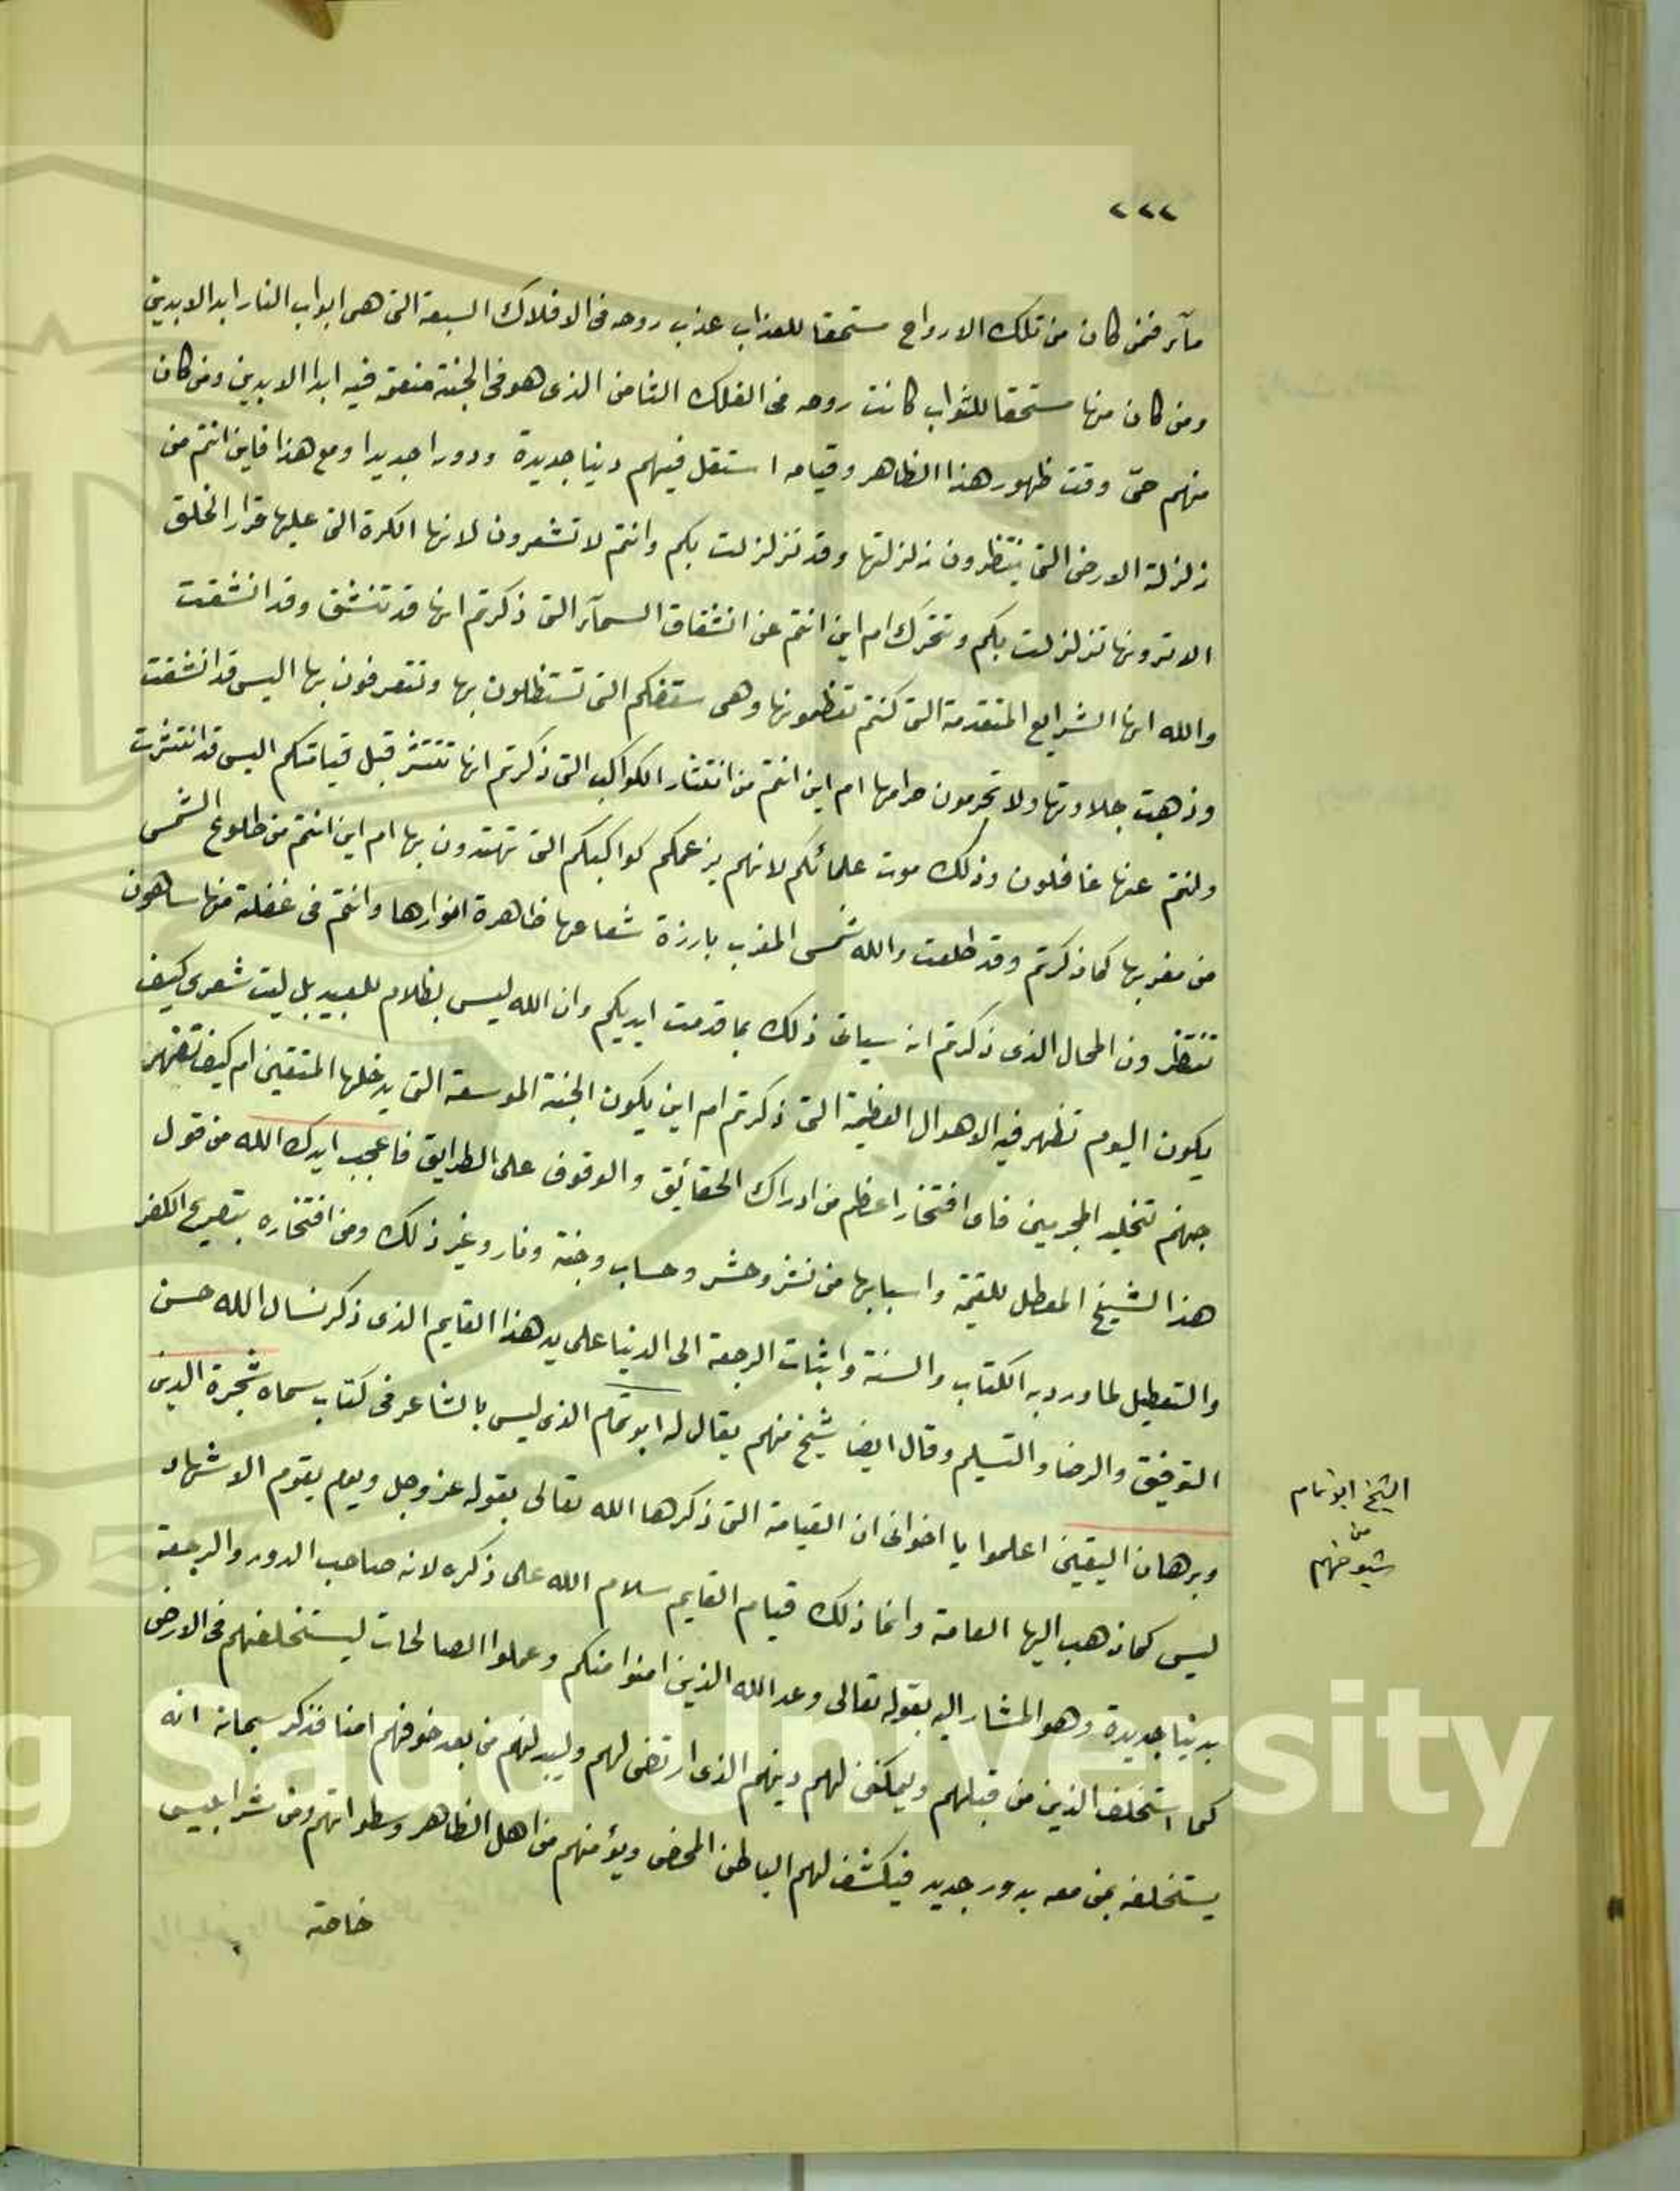 ٢٢٢
مآء فمن كان من تلك الارواح مستحقا للعذاب عذب روحه فى الافلاك السبعة التى هى ابواب النار ابد الابدين
ومن كان منها مستحقا للثواب كانت روحه فى الفلك الثامن الذى هو فى الجنة منعمة فيه ابدا الابدين ومن كان
منهم حىّ وقت ظهور هذا الظاهر وقيامه استقل فيهم دنيا جديدة ودورا جديدا ومع هذا فاين انتم من
زلزلة الارض التى ينتظرون زلزلتها وقد تزلزلت بكم وانتم لا تشعرون لانها الكرة التى عليها قرار الخلق
الا ترونها تزلزلت بكم وتتحرك ام اين انتم عن انشقاق السمآء التى ذكرتم انها قد تنشق وقد انشقت
والله انها الشرايع المتقدمة التى كنتم تعظمونها وهى سقفكم التى تستظلون بها وتتعرفون بها اليس قد انشقت
وذهبت حلاوتها ولا تحرمون حرامها ام اين انتم من انتثار الكواكب التى ذكرتم انها تنتثر قبل قيامتكم اليس قد انتثرت
وانتم عنها غافلون وذلك موت علمائكم لانهم بزعمكم كواكبكم التى تهتدون بها ام اين انتم من طلوع الشمس
من مغربها كما ذكرتم وقد طلعت والله شمس المغرب بارزة شعاعها ظاهرة انوارها وانتم فى غفلة منها ساهون
تنتظرون المحال الذى ذكرتم انه سياتى ذلك بما قدمت ايديكم وان الله ليس بظلام للعبيد بل ليت شعرى كيف
يكون اليوم تظهر فيه الاهوال العظيمة التى ذكرتم ام اين يكون الجنة الموسعة التى يدخلها المتقين ام كيف تظهر
جهنم تخليد المجرمين فاى افتخار اعظم من ادراك الحقائق والوقوف على الطرايق فاعجب ايدك الله من قول
هذا الشيخ المعطل للقيمة واسبابها من نشر وحشر وحساب وجنة ونار وغير ذلك ومن افتخاره بتصريح الكفر
والتعطيل لما ورد به الكتاب والسنة واثبات الرجعة الى الدنيا على يد هذا القايم الذى ذكر نسال الله حسن
التوفيق والرضا والتسليم وقال ايضا شيخ منهم يقال له ابو تمام الذى ليس بالشاعر فى كتاب سماه شجرة الدين
وبرهان اليقين اعلموا يا اخوانى ان القيامة التى ذكرها الله تعالى بقوله عز وجل ويوم يقوم الاشهاد
ليس كما ذهب اليها العامة وانما ذلك قيام القايم سلام الله على ذكره لانه صاحب الدور والرجعة
بدنيا جديدة وهو المشار اليه بقوله تعالى وعد الله الذين امنوا منكم وعملوا الصالحات ليستخلفنهم فى الارض
كما استخلف الذين من قبلهم وليمكنن لهم دينهم الذى ارتضى لهم وليبدلنهم من بعد خوفهم امنا فذكر سبحانه انه
يستخلفه بمن معه بدور جديد فيكشف لهم الباطن المحض ويؤمنهم من اهل الظاهر وسطواتهم ومن شر ابليس
خاصته
الشيخ ابو تمام
من
شيوخهم